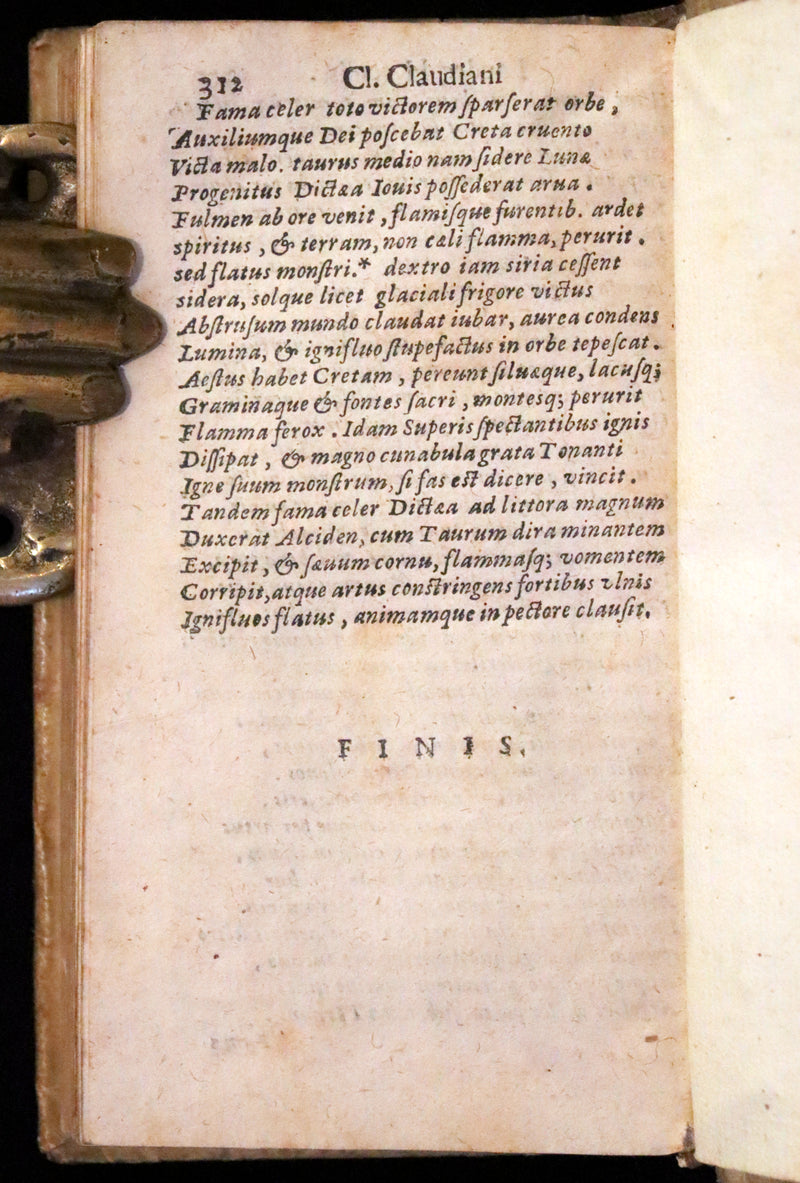 312 Cl. Claudiani
Fama celer toto victorem ſparſerat orbe,
Auxiliumque Dei poſcebat Creta cruento
Victa malo. taurus medio nam ſidere Lunæ
Progenitus Dictæa Iouis poſſederat arua.
Fulmen ab ore venit, flamiſque furentib. ardet
spiritus, & terram, non cæli flamma, perurit.
sed flatus monſtri.* dextro iam siria ceſſent
sidera, solque licet glaciali frigore victus
Abſtruſum mundo claudat iubar, aurea condens
Lumina, & ignifluo ſtupefactus in orbe tepeſcat.
Aeſtus habet Cretam, pereunt ſiluæque, lacuſq;
Graminaque & fontes ſacri, montesq; perurit
Flamma ferox. Idam Superis ſpectantibus ignis
Diſſipat, & magno cunabula grata Tonanti
Igne ſuum monſtrum, ſi fas eſt dicere, vincit.
Tandem fama celer Dictæa ad littora magnum
Duxerat Alciden, cum Taurum dira minantem
Excipit, & ſæuum cornu, flammaſq; vomentem
Corripit, atque artus conſtringens fortibus vlnis
Ignifluos flatus, animamque in pectore clauſit.
FINIS.